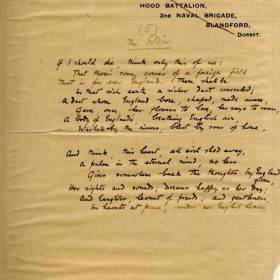 HOOD BATTALION,
2ND NAVAL BRIGADE,
BLANDFORD,
DORSET.
(5)
The Soldier
If I should die, think only this of me:
That there's some corner of a foreign field
That is for ever England. There shall be
In that rich earth a richer dust concealed;
A dust whom England bore, shaped, made aware,
Gave, once, her flowers to love, her ways to roam,
A body of England's, breathing English air,
Washed by the rivers, blest by suns of home.
And think, this heart, all evil shed away,
A pulse in the eternal mind, no less
Gives somewhere back the thoughts by England given,
Her sights and sounds; dreams happy as her day;
And laughter, learnt of friends; and gentleness,
In hearts at peace, under an English heaven.